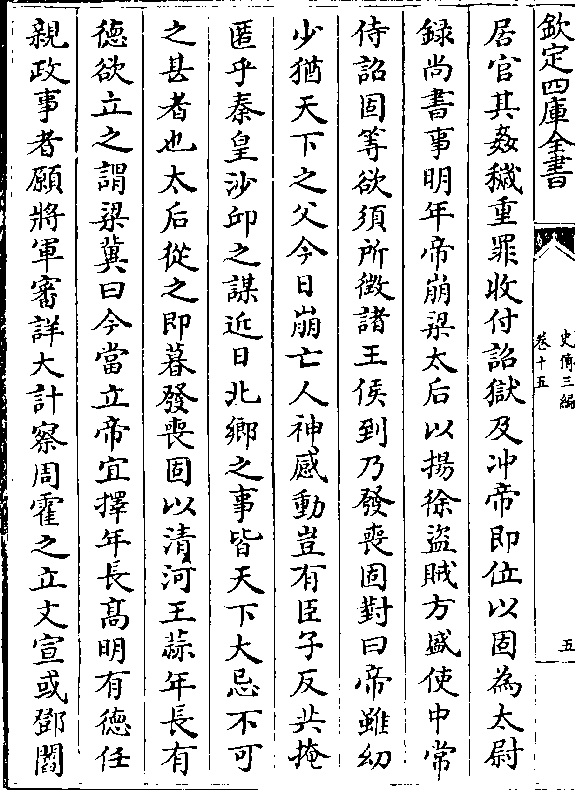 欽定四庫全書
史傳三編
卷十五
五
居官其姦穢重罪收付詔獄及冲帝即位以固為太尉
録尚書事明年帝崩梁太后以揚徐盜賊方盛使中常
侍詔固等欲須所徵諸王侯到乃發喪固對曰帝雖幼
少猶天下之父今日崩亡人神感動豈有臣子反共掩
匿乎秦皇沙邱之謀近日北鄉之事皆天下大忌不可
之甚者也太后從之即暮發喪固以清河王蒜年長有
德欲立之謂梁冀曰今當立帝宜擇年長高明有德任
親政事者願將軍審詳大計察周霍之立文宣或鄧閻